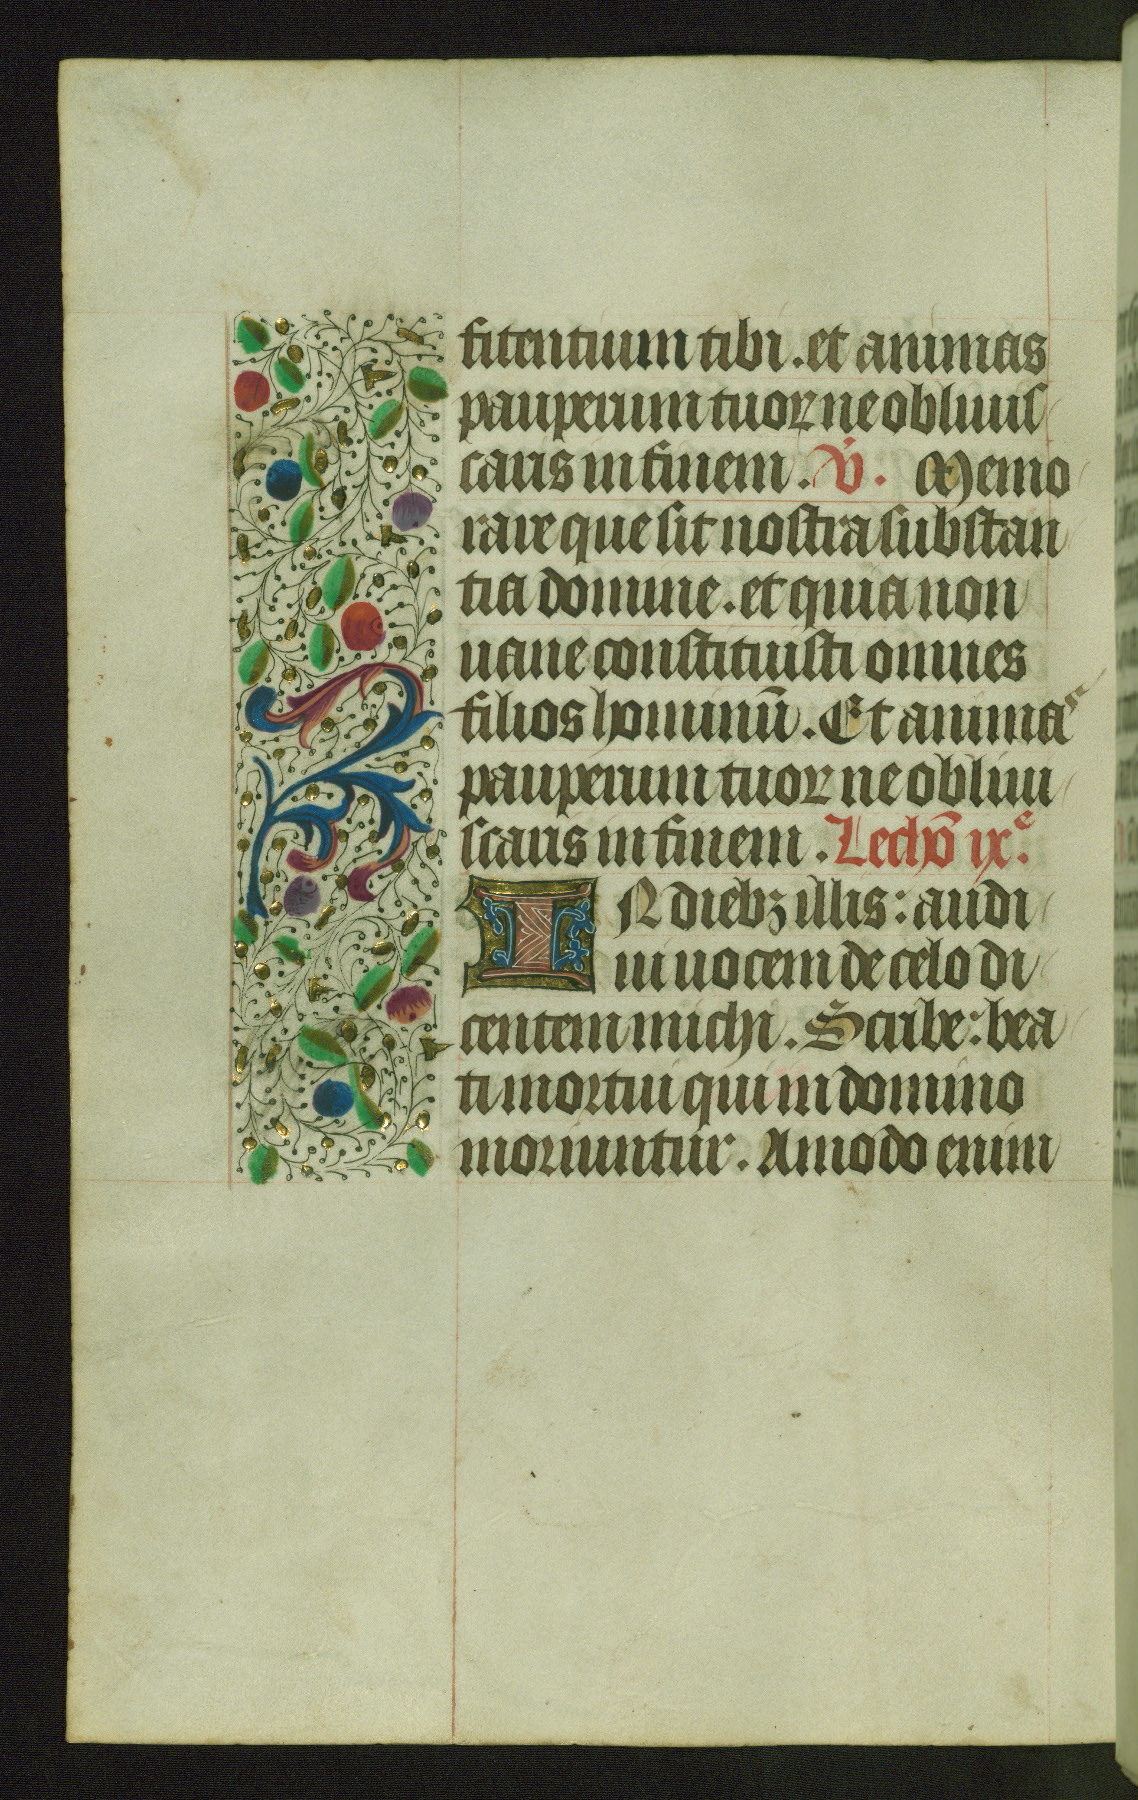 fitentium tibi . et animas
pauperum tuorꝝ ne obliuis
caris in finem . V̄ . Memo
rare que sit nostra substan
tia domine . et quia non
uane constituisti omnes
filios hominū . Et animas
pauperum tuorꝝ ne obliui
scaris in finem . Lectiō ixᵃ.
IN diebꝫ illis : audi
ui uocem de celo di
centem michi . Scribe : bea
ti mortui qui in domino
moriuntur . Amodo enim